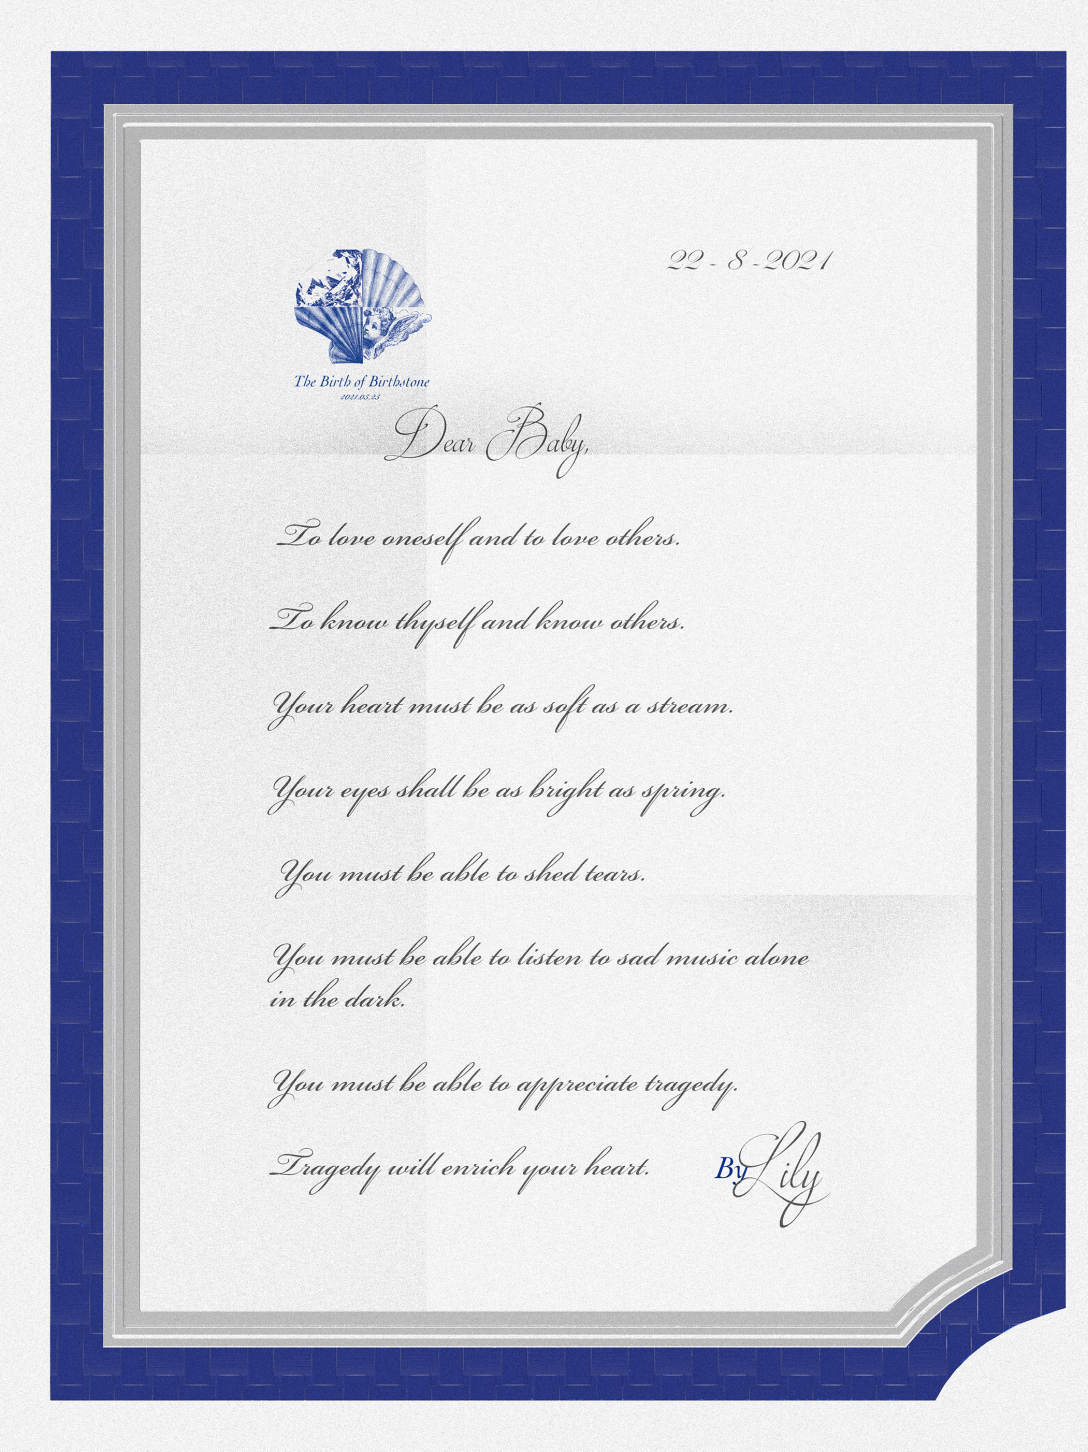 22 - 8 - 2021
The Birth of Birthstone
2021.05.25
Dear Baby,
To love oneself and to love others.
To know thyself and know others.
Your heart must be as soft as a stream.
Your eyes shall be as bright as spring.
You must be able to shed tears.
You must be able to listen to sad music alone
in the dark.
You must be able to appreciate tragedy.
Tragedy will enrich your heart.
By Lily